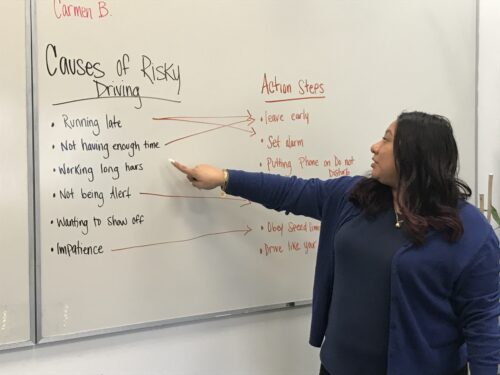 Carmen B.
Causes of Risky
Driving
• Running late
• Not having enough time
• Working long hars
• Not being Alert
• Wanting to show off
• Impatience
Action Steps
• leave early
• Set alarm
• Putting Phone on Do not
Disturb
• Obey Speed
• Drive like your